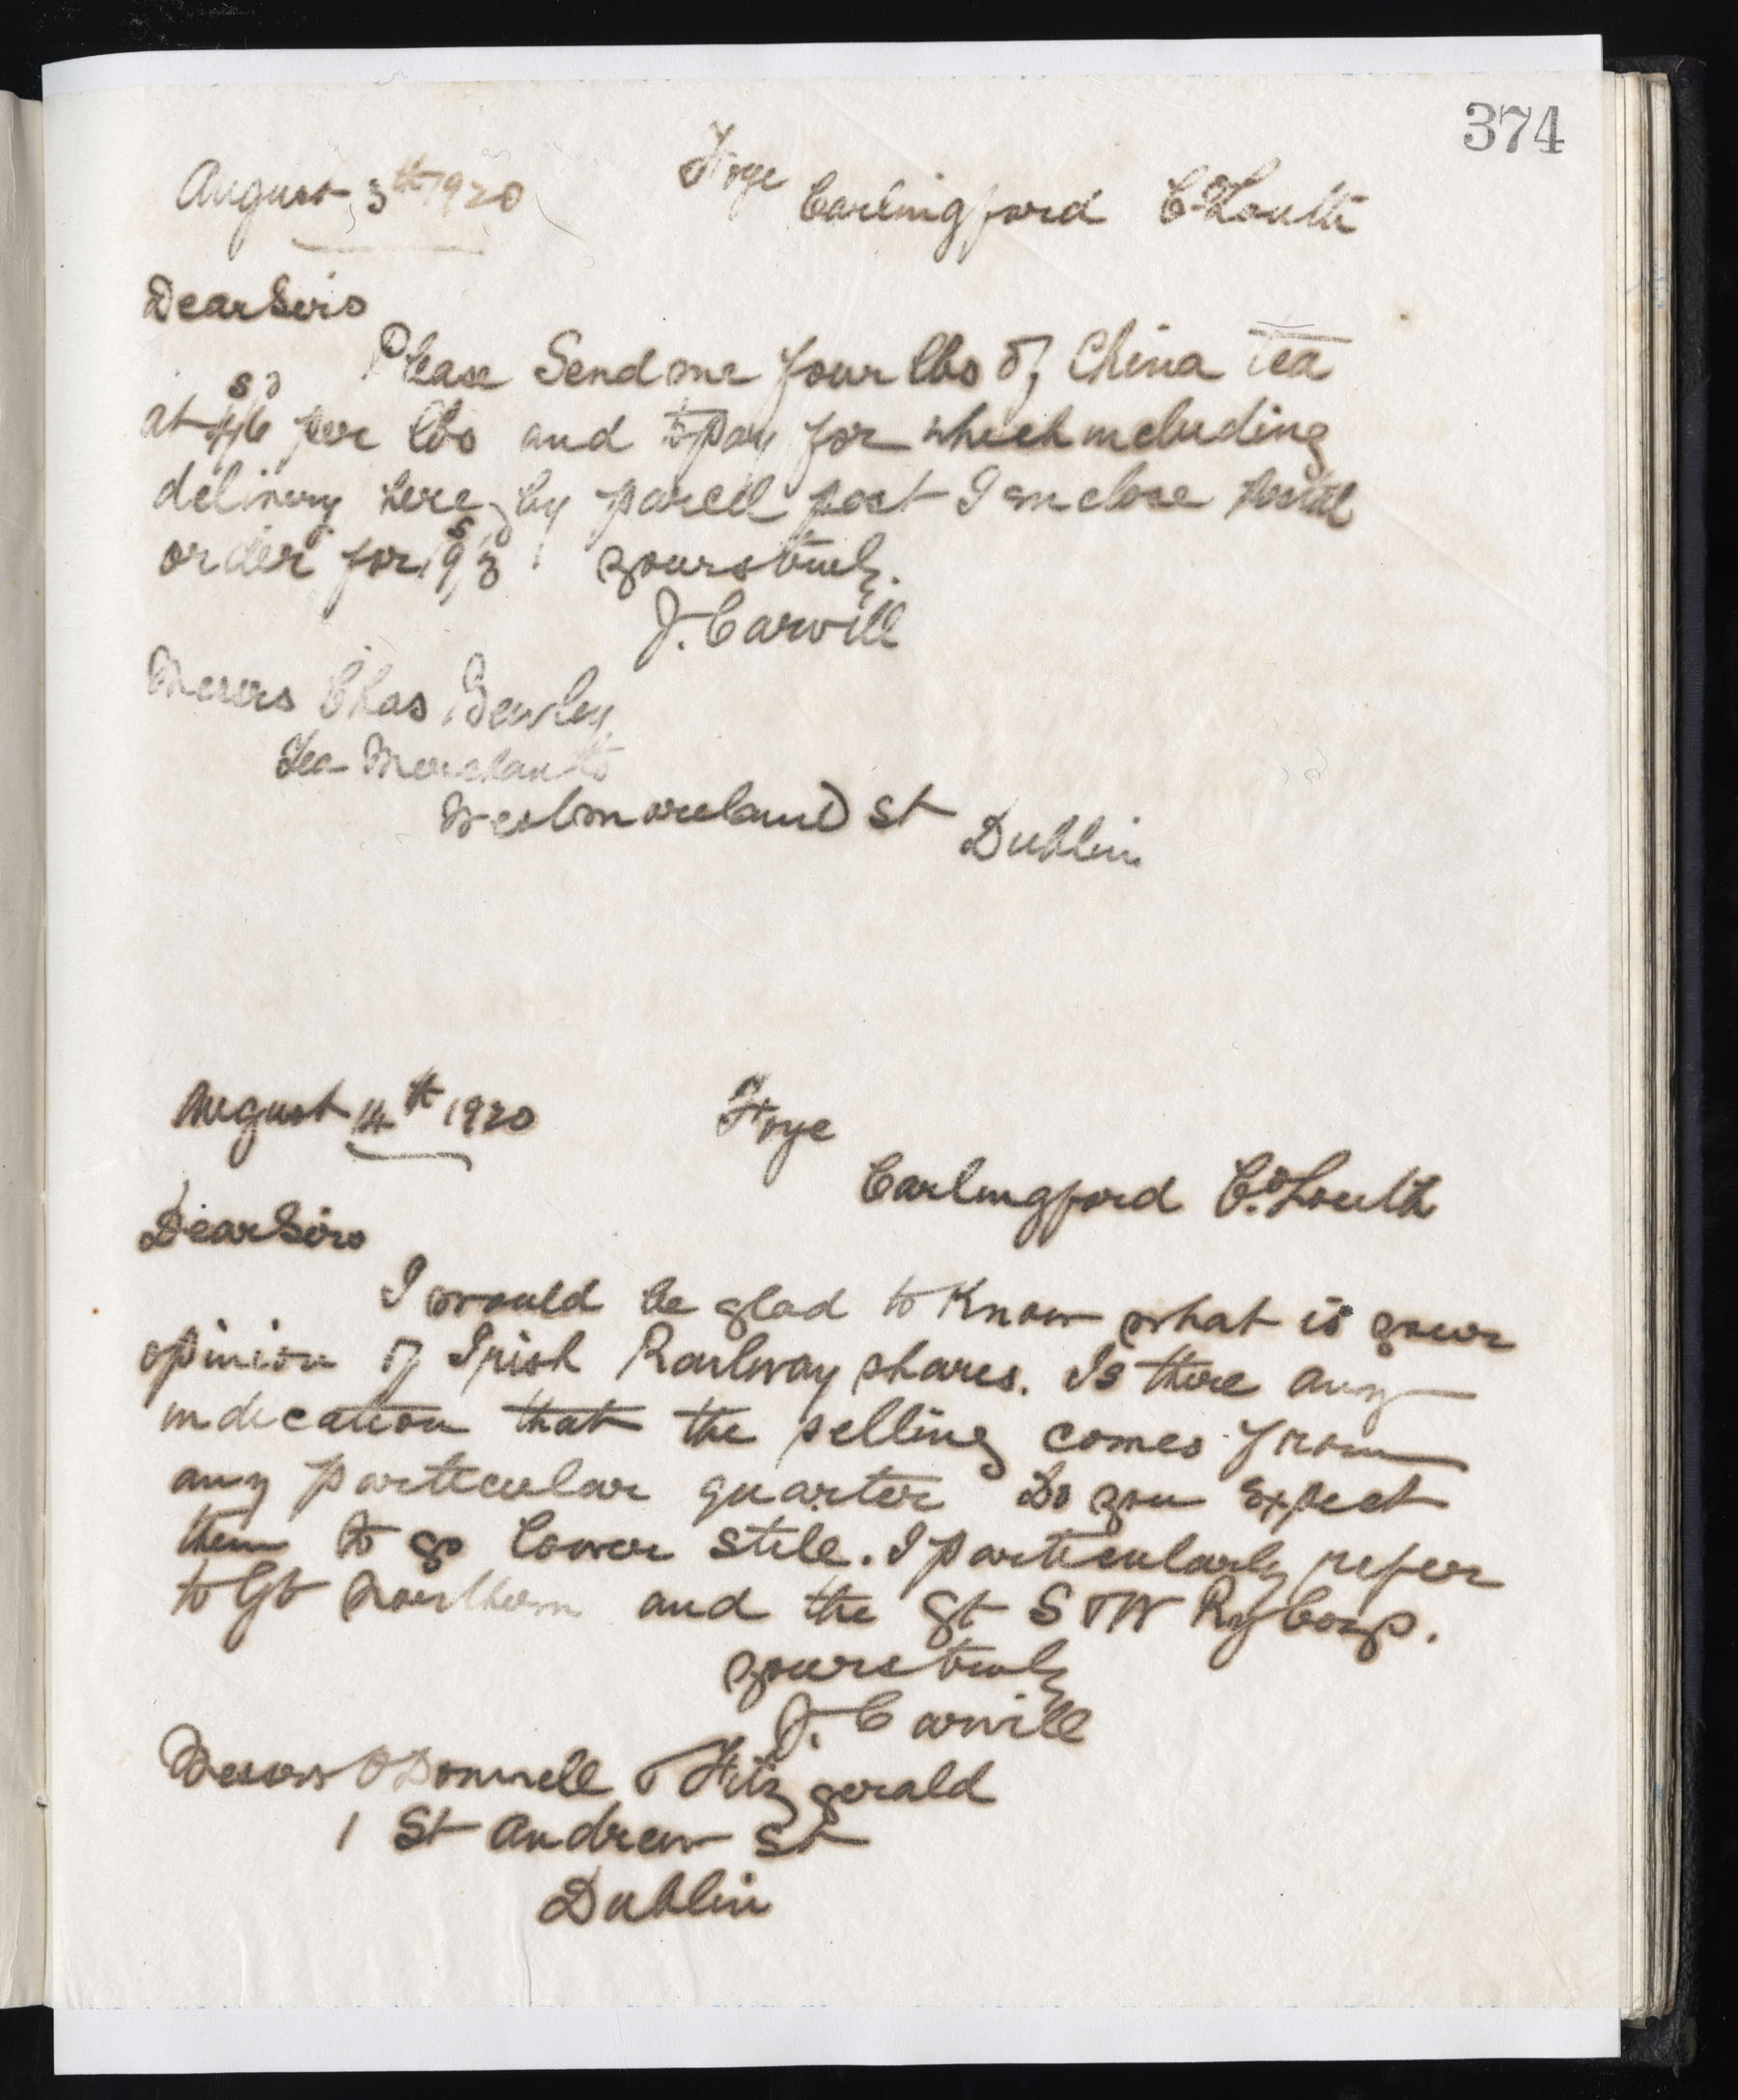 374
August 3th 1920 Foye
Carlingford Co Louth
Dear Sirs
Please Send me four lbs of China tea
at 4s/6d per lbs and to pay for which including
delivery here by parcel post I enclose postal
order for 19s/3 yours truly
J. Carvill
Messrs Chas Bewley
Tea Merchants
Westmoreland St Dublin
August 14th 1920 Foye
Carlingford Co. Louth
Dear Sirs
I would be glad to Know what is your
opinion of Irish Railway shares. Is there any
indication that the selling comes from
any particular quarter Do you Expect
them to go lower still. I particularly refer
to Gt Northern and the Gt S & W Ry Coys.
yours truly
J. Carvill
Messrs O'Donnell & Fitzgerald
1 St Andrew St
Dublin